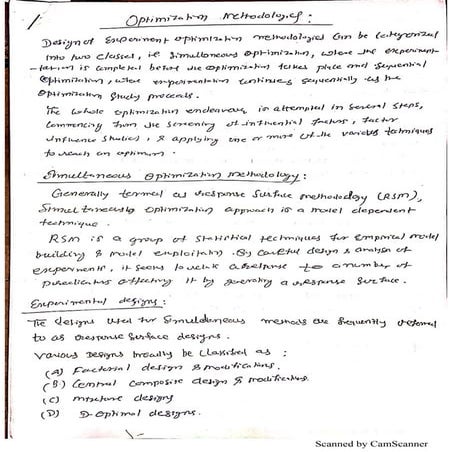 Optimization Methodologies :
Design of Experiment optimization methodologies can be categorized
into two classes, i.e simultaneous optimization, where the experiment-
-tation is completed before the optimization takes place and sequential
optimization, where experimentation continues sequentially as the
optimization study proceeds.
The whole optimization endeavour is attempted in several steps,
commencing from the screening of influential factors, factor
influence studies, & applying one or more of the various techniques
to reach an optimum.
Simultaneous optimization Methodology :
Generally termed as response surface methodology (RSM),
simultaneously optimization approach is a model dependent
technique.
RSM is a group of statistical techniques for empirical model
building & model exploitation. By careful design & analysis of
experiments, it seeks to relate a response to a number of
predictors affecting it by generating a response surface.
Experimental designs :
The designs used for simultaneous methods are frequently referred
to as response surface designs.
Various Designs broadly be classified as :
(A) Factorial design & modifications.
(B) Central composite design & modifications.
(C) Mixture designs
(D) D-optimal designs.
Scanned by CamScanner